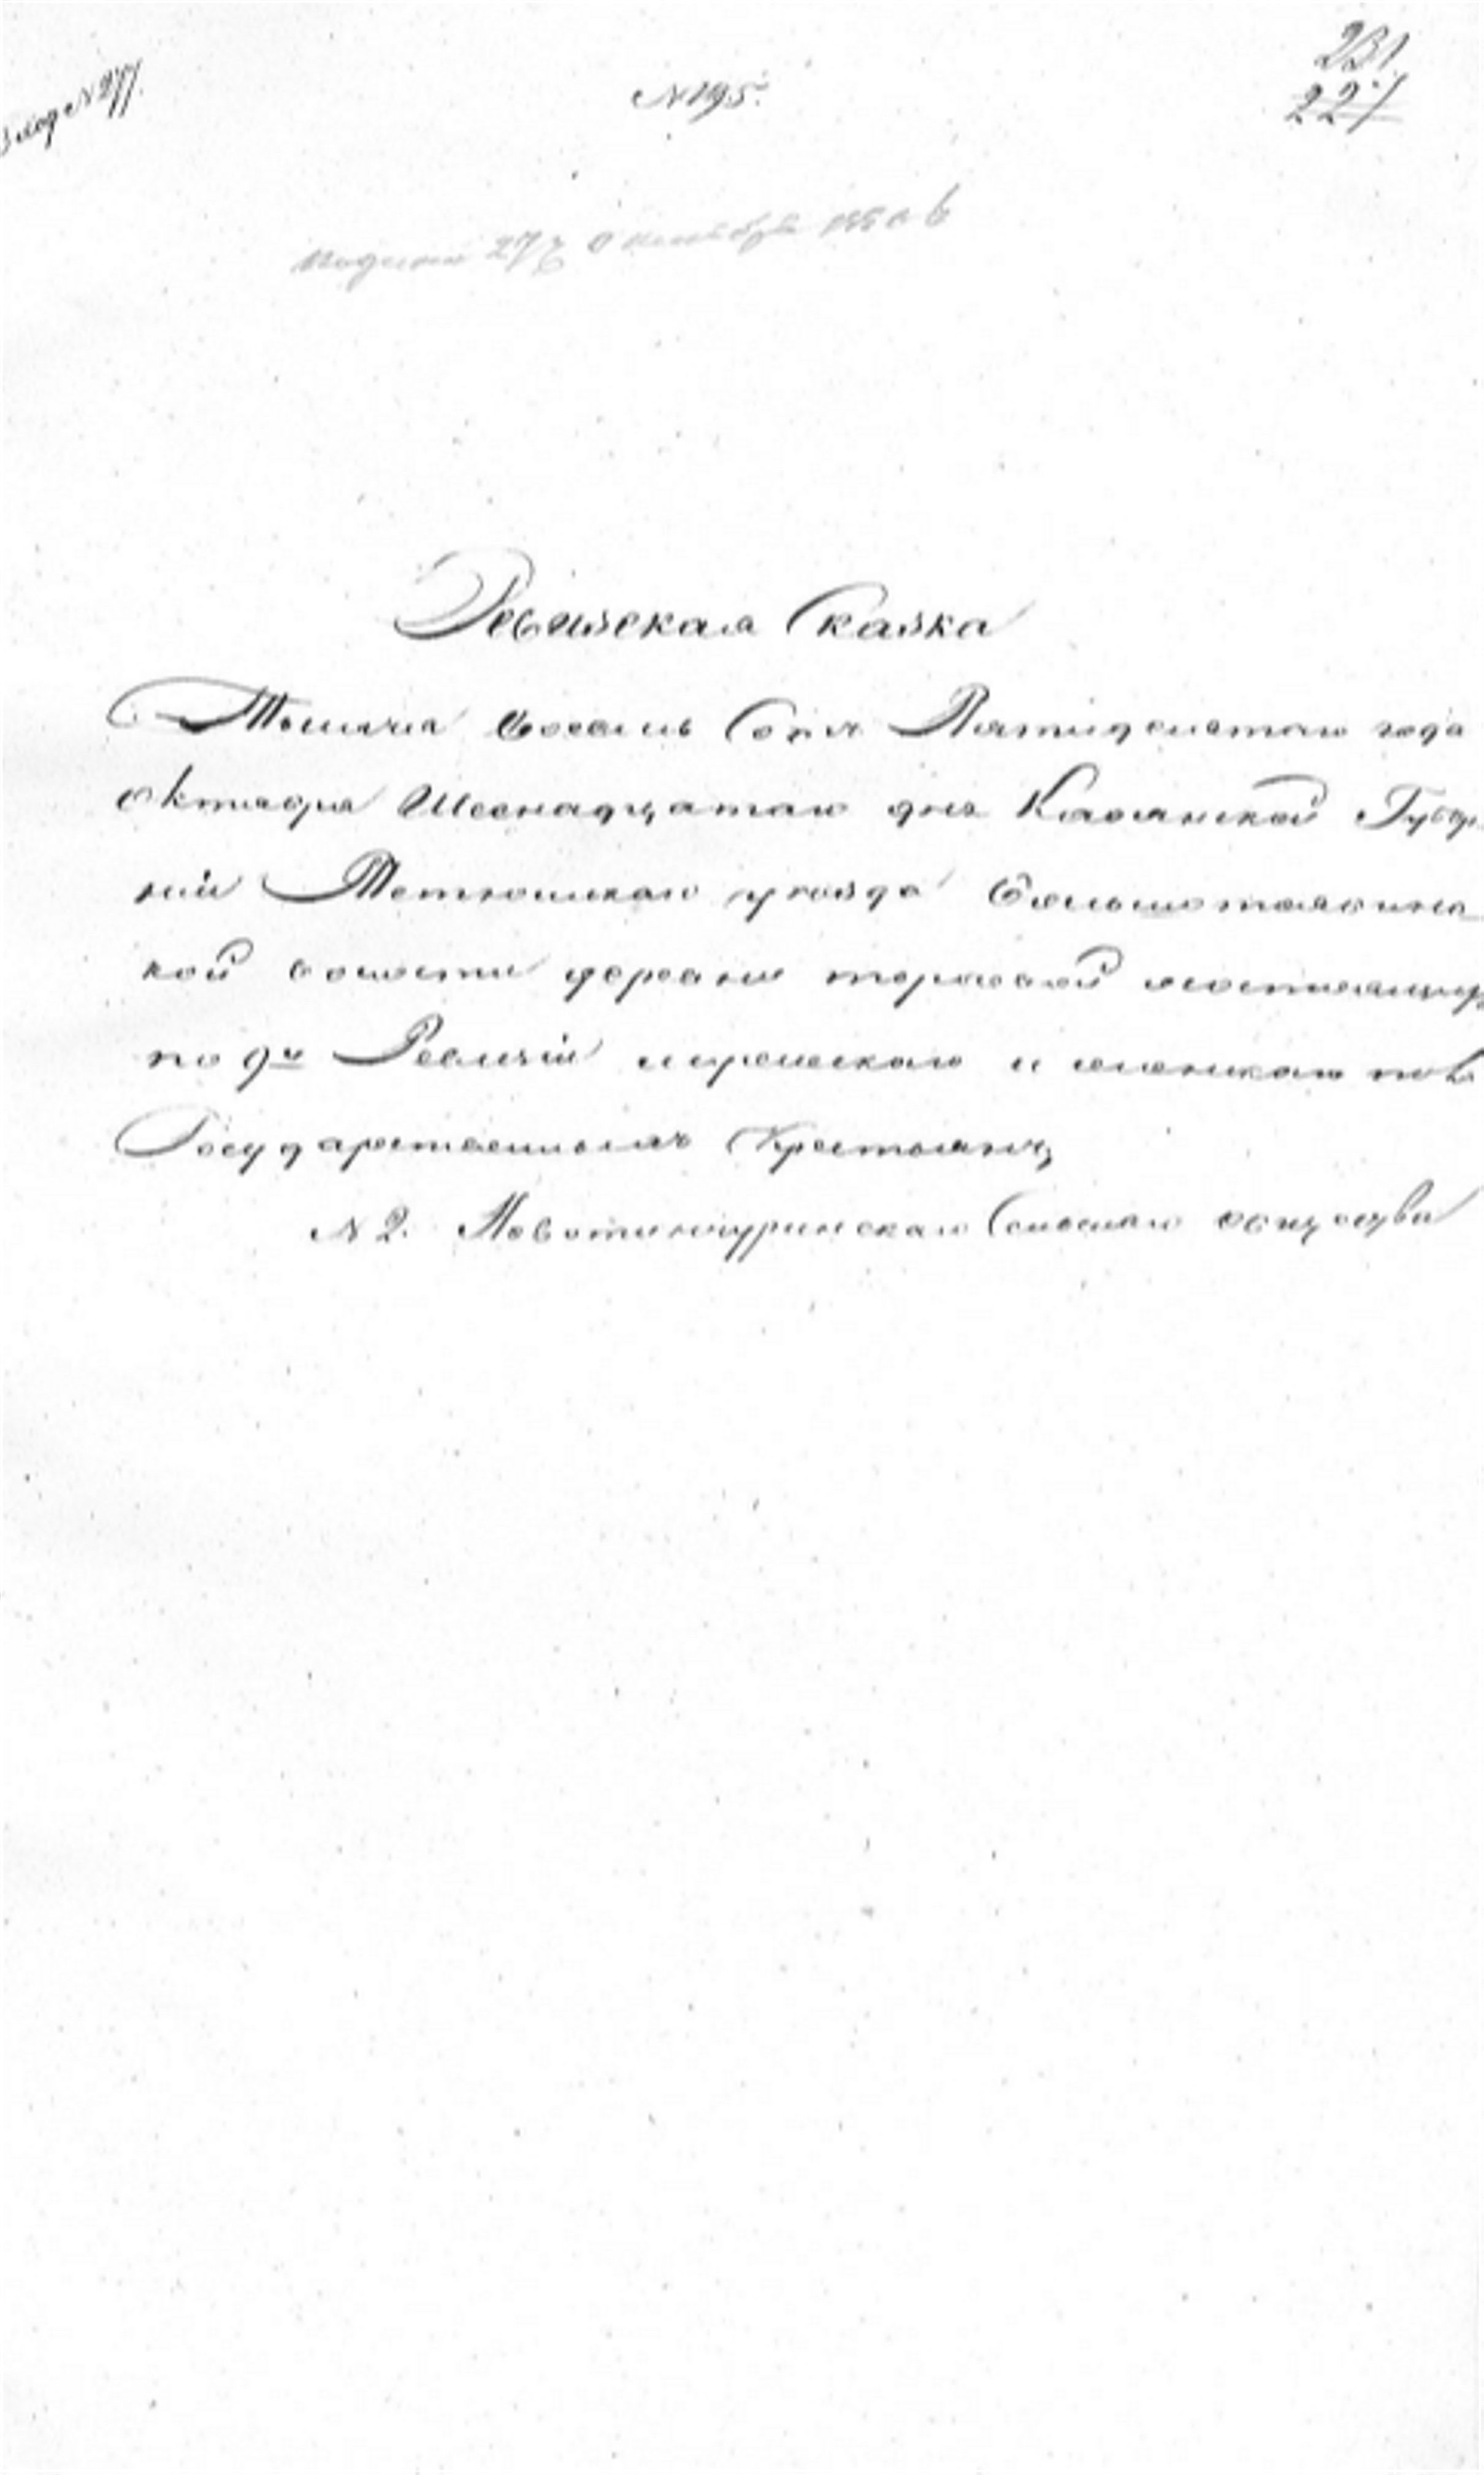 № 277.
№ 195.
231
227
Подана 27 Октября 1850 г
Ревизская Сказка
Тысяча восемь Сотъ Пятидесятаго года
октября Шеснадцатаго дня Казанской Губер
ніи Тетюшскаго уезда Большетоябинс
кой волости деревни состоящихъ
по 9й Ревизіи мужескаго и женскаго пола
Государственныхъ Крестьянъ
№ 2. Новотинчуринскаго Сельскаго общества